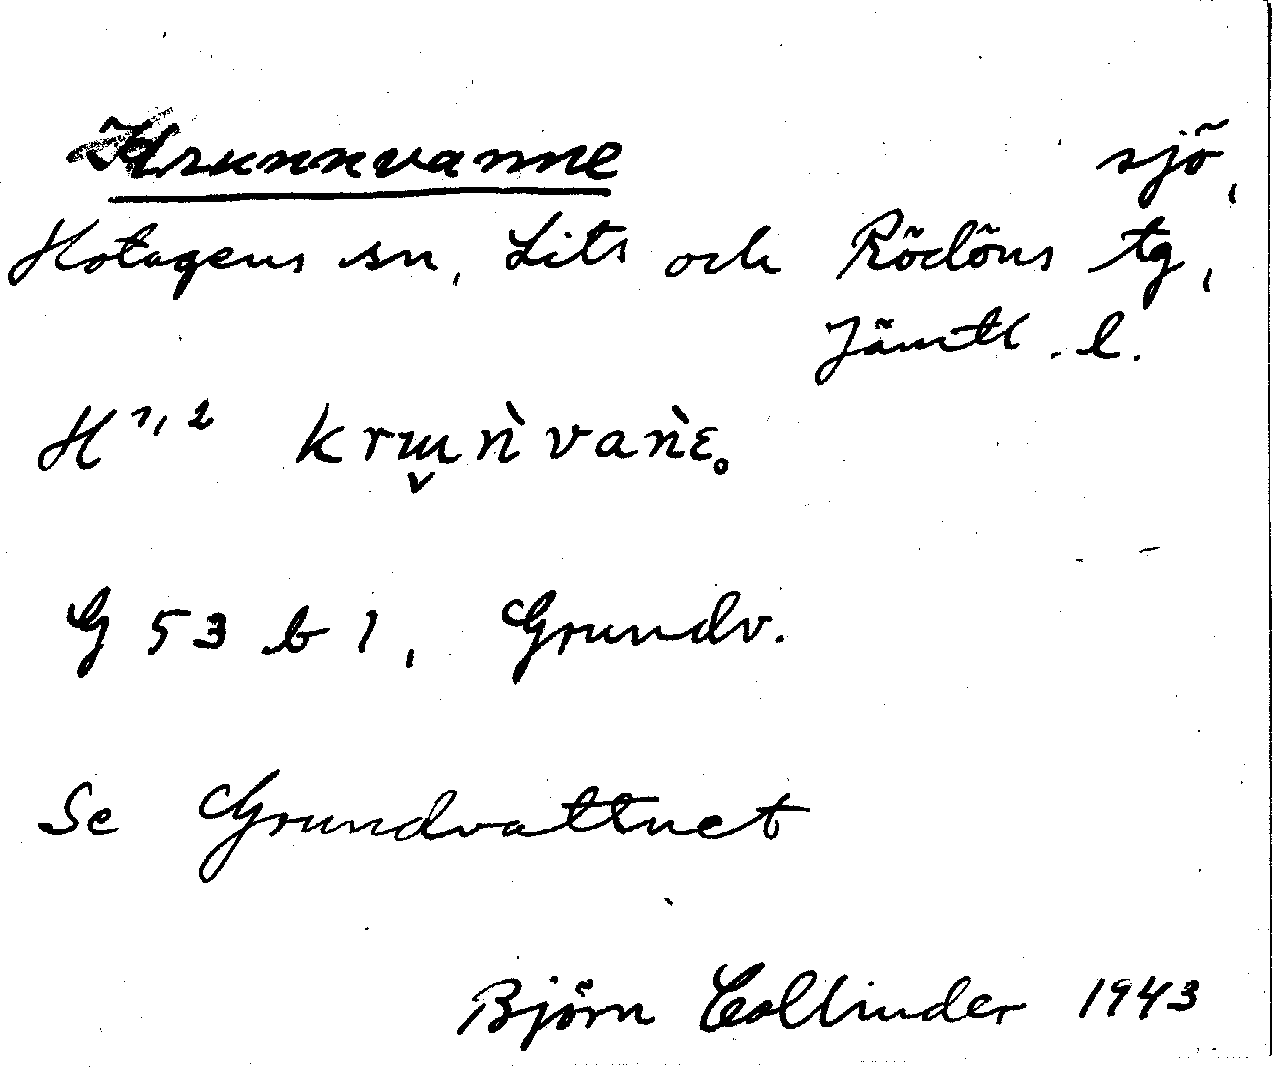 Krunnvanne sjö,
Hotagens sn, Lits och Rödöns tg,
Jämtl. l.
H 1, 2 krɯ̬ǹvaǹɛ̥
G 53 b 1, Grundv.
Se Grundvattnet
Björn Collinder 1943